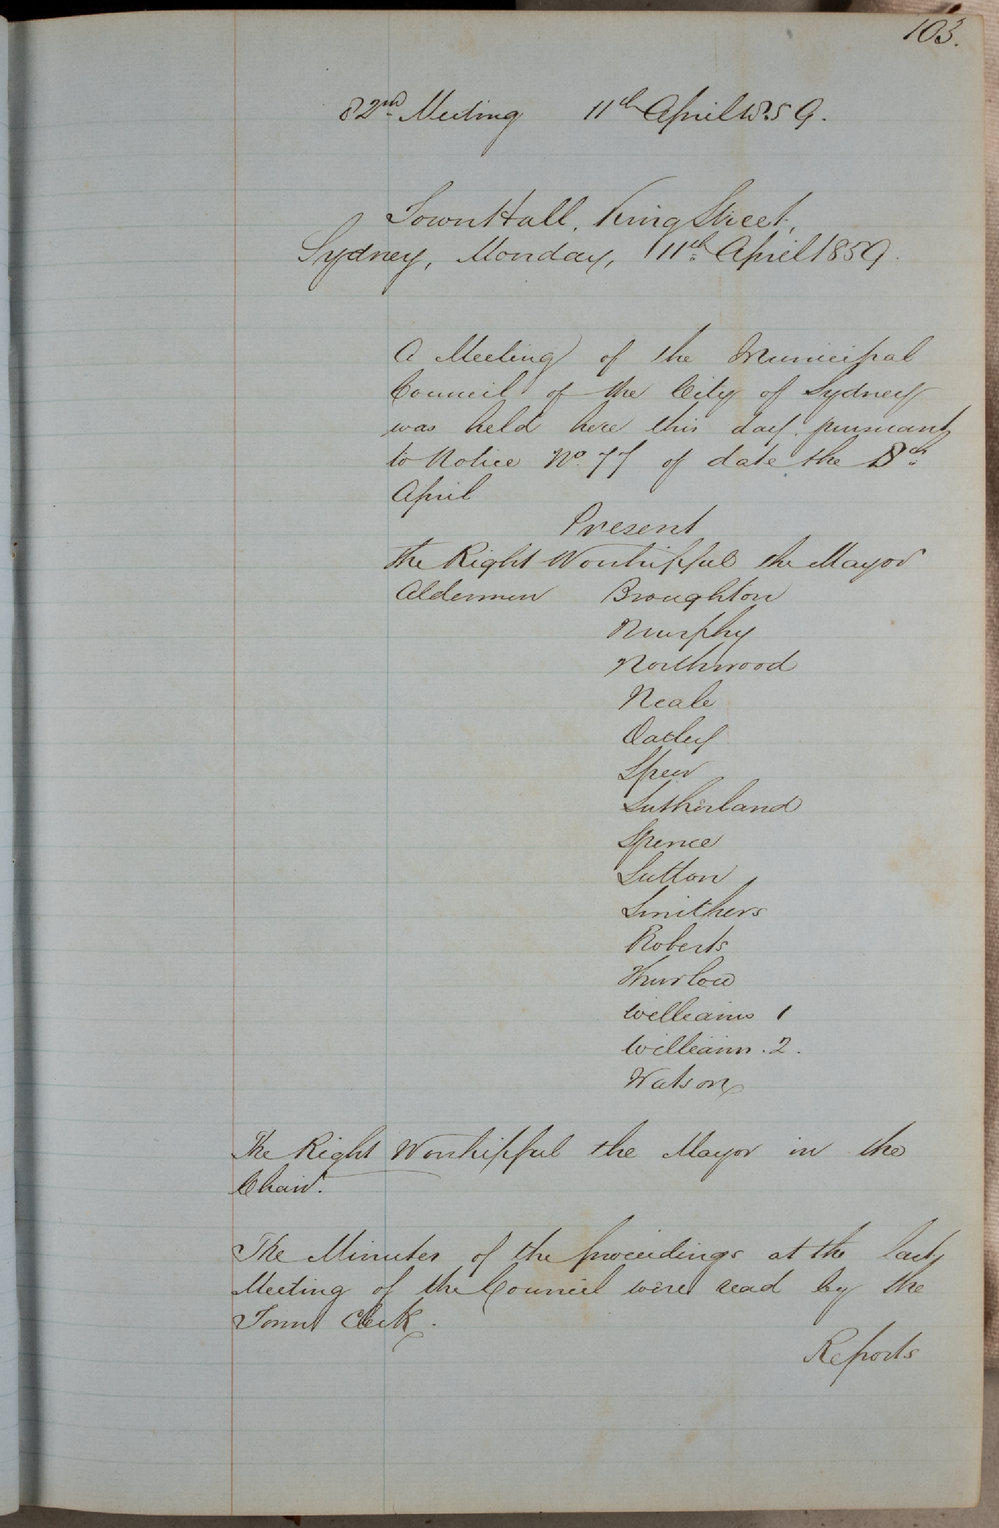 103.
82nd Meeting 11th April 1859.
Town Hall, King Street,
Sydney, Monday, 11th April 1859.
A Meeting of the Municipal
Council of the City of Sydney
was held here this day pursuant
to Notice No. 77 of date the 8th
April
Present
The Right Worshipful the Mayor
Aldermen Broughton
Murphy
Northwood
Neale
Oatley
Speer
Sutherland
Spence
Sutton
Smithers
Roberts
Thurlow
Williams 1
Williams. 2.
Watson
The Right Worshipful the Mayor in the
Chair.
The Minutes of the proceedings at the last
Meeting of the Council were read by the
Town Clerk.
Reports